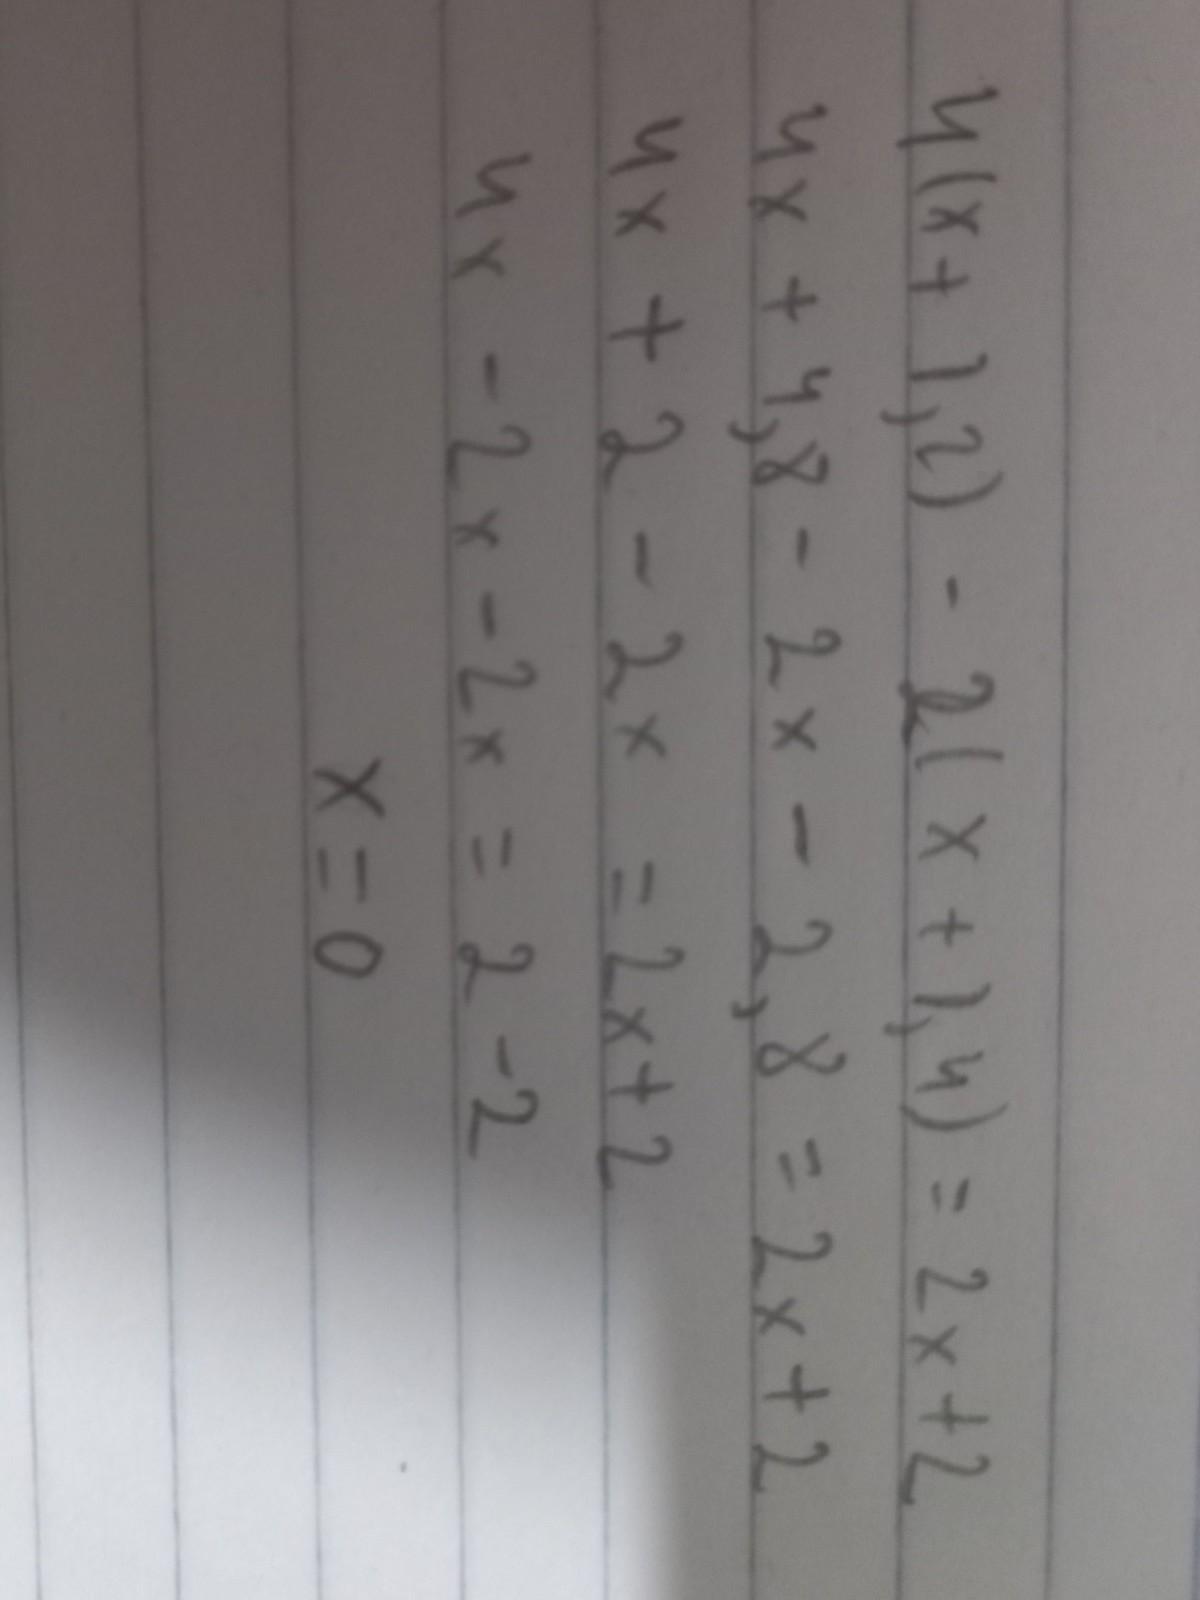 4(x + 1,2) - 2(x + 1,4) = 2x + 2
4x + 4,8 - 2x - 2,8 = 2x + 2
4x + 2 - 2x = 2x + 2
4x - 2x - 2x = 2 - 2
x = 0